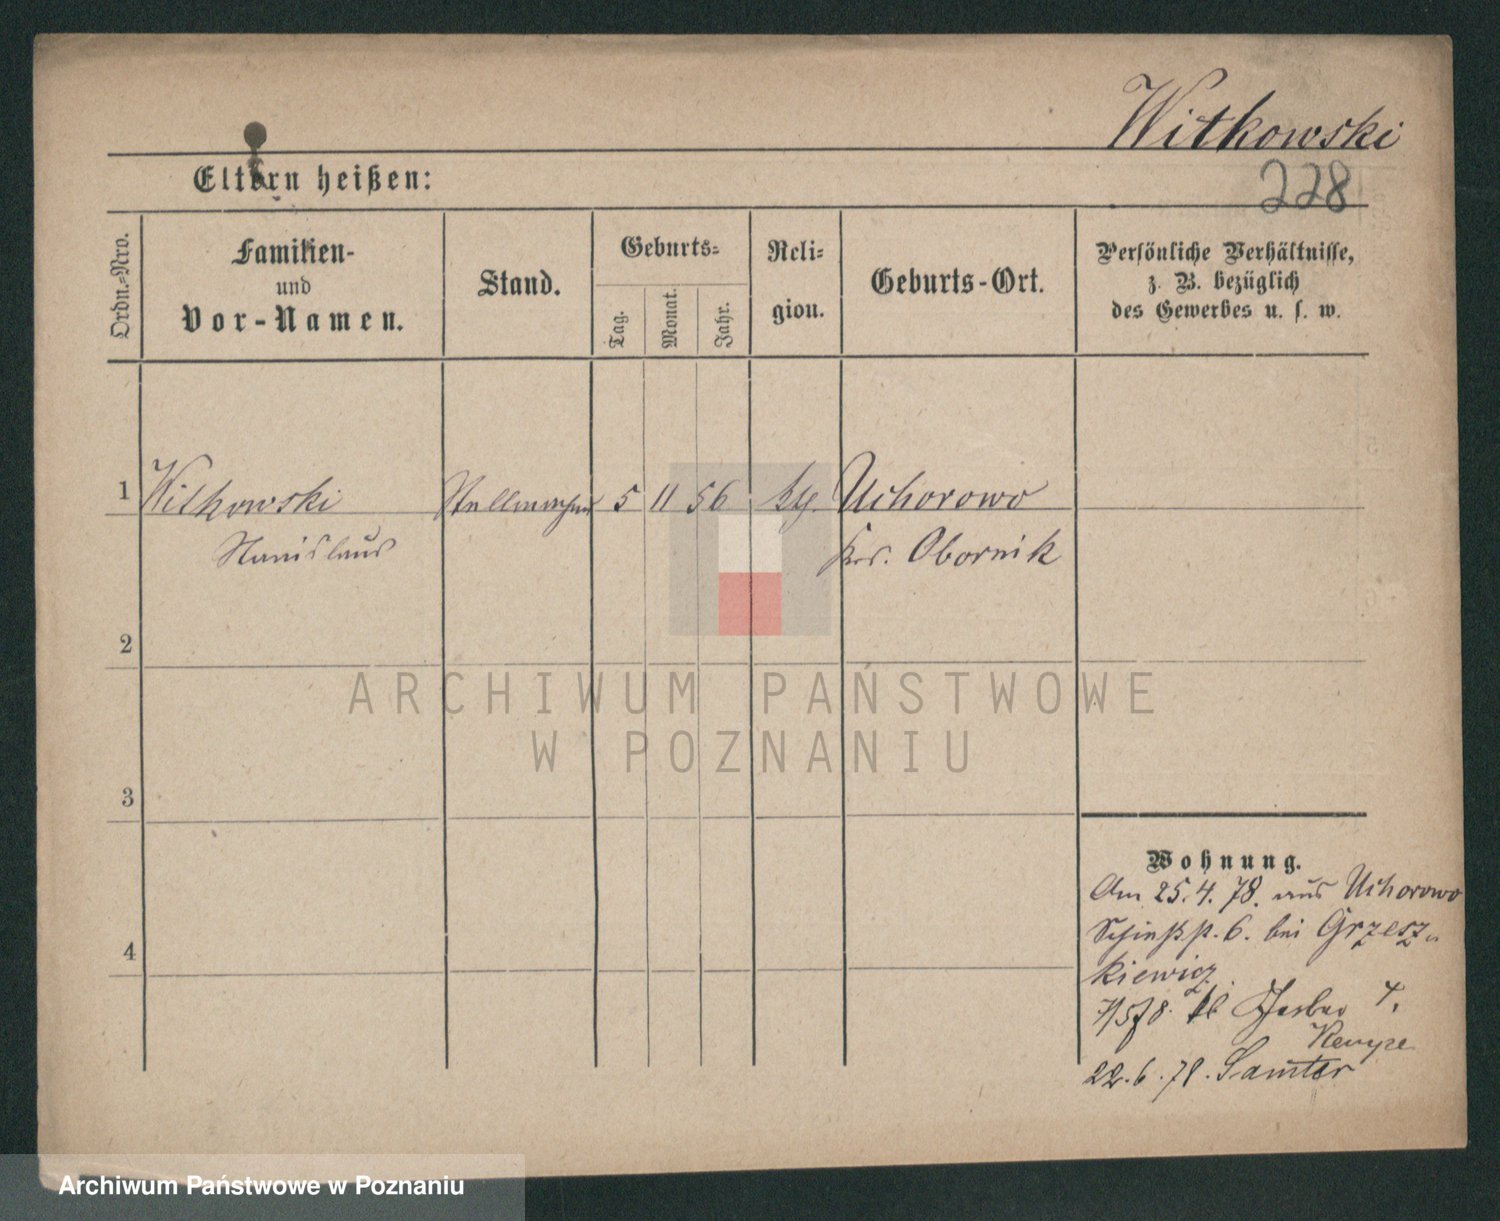 Witkowski
228
Eltern heißen:
Ordn.-Nro.
Familien-
und
Vor-Namen.
Stand.
Geburts-
Tag.
Monat.
Jahr.
Reli-
gion.
Geburts-Ort.
Persönliche Verhältnisse,
z. B. bezüglich
des Gewerbes u. s. w.
1 Witkowski Stellmacher 5 11 56 kth. Uchorowo
Stanislaus Krs. Obornik
2
3
4
Wohnung.
Am 25.4.78. aus Uchorowo
Schießst. 6. bei Grzesz-
kiewicz
7/5 78.
Kempe
22.6.78. Samter
ARCHIWUM PAŃSTWOWE
W POZNANIU
Archiwum Państwowe w Poznaniu